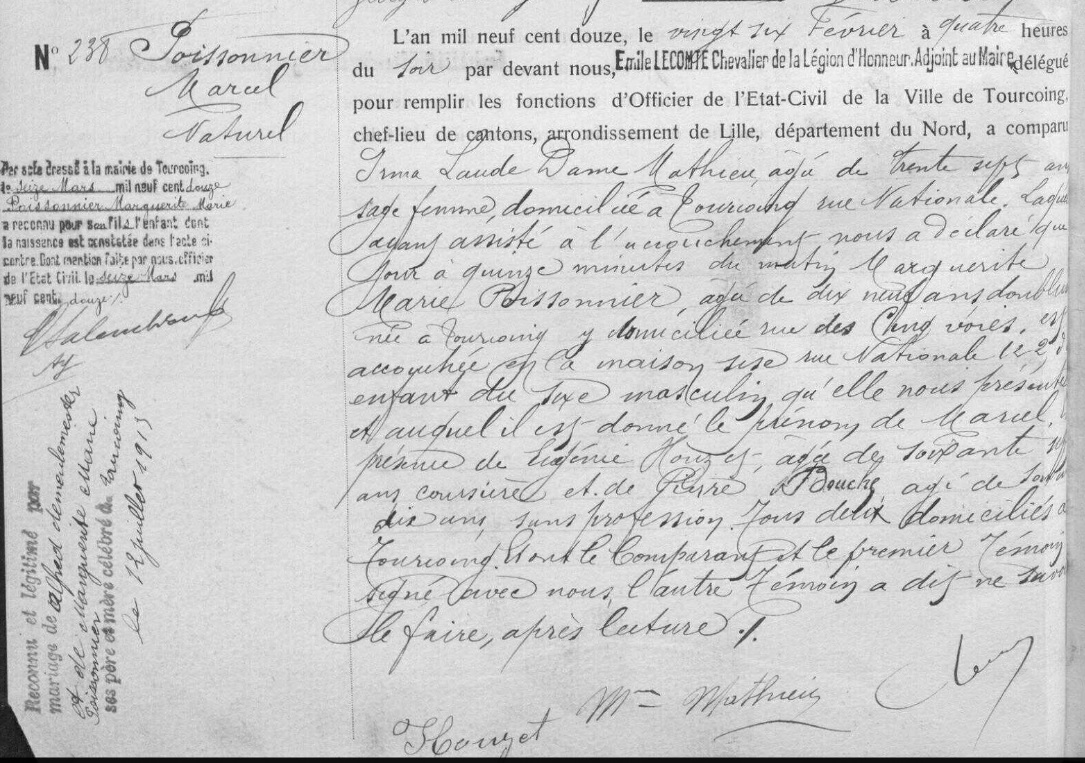 N° 238 Poissonnier
Marcel
Naturel
Par acte dressé à la mairie de Tourcoing.
le seize Mars mil neuf cent douze
Poissonnier Marguerite Marie
a reconnu pour son fils l'enfant dont
la naissance est constatée dans l'acte ci-
contre. Dont mention faite par nous, officier
de l'Etat Civil, le seize Mars mil
neuf cent douze
Reconnu et légitimé par
mariage de Alfred
et de Marguerite Marie
Poissonnier
ses père et mère célébré à Tourcoing
le 12 juillet 1913
L'an mil neuf cent douze, le vingt six Février à quatre heures
du soir par devant nous, Emile LECOMTE Chevalier de la Légion d'Honneur. Adjoint au Maire délégué
pour remplir les fonctions d'Officier de l'Etat-Civil de la Ville de Tourcoing,
chef-lieu de cantons, arrondissement de Lille, département du Nord, a comparu
Irma Laude Dame Mathieu, agée de trente sept ans
sage femme, domiciliée à Tourcoing rue Nationale. Laquelle
ayant assisté à l'accouchement nous a déclaré que
à quinze minutes du matin Marguerite
Marie Poissonnier, agée de dix neuf ans
née à Tourcoing y domiciliée rue des Cinq voies, est
accouchée en la maison sise rue Nationale 122
enfant du sexe masculin, qu'elle nous présente
et auquel il est donné le prénom de Marcel.
présence de Eugénie Houzet, agée de soixante
ans coursière et de Pierre Bouche agé de
dix ans, sans profession. Tous deux domiciliés à
Tourcoing. Et ont le Comparant et le premier Témoin
signé avec nous, l'autre Témoin a dit ne savoir
le faire, après lecture ./.
Mme Mathieu
Houzet